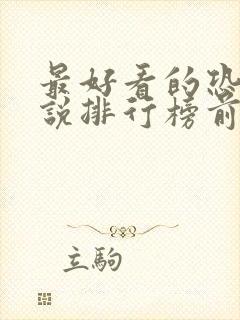 最好看的恐
说排行榜前
立駒